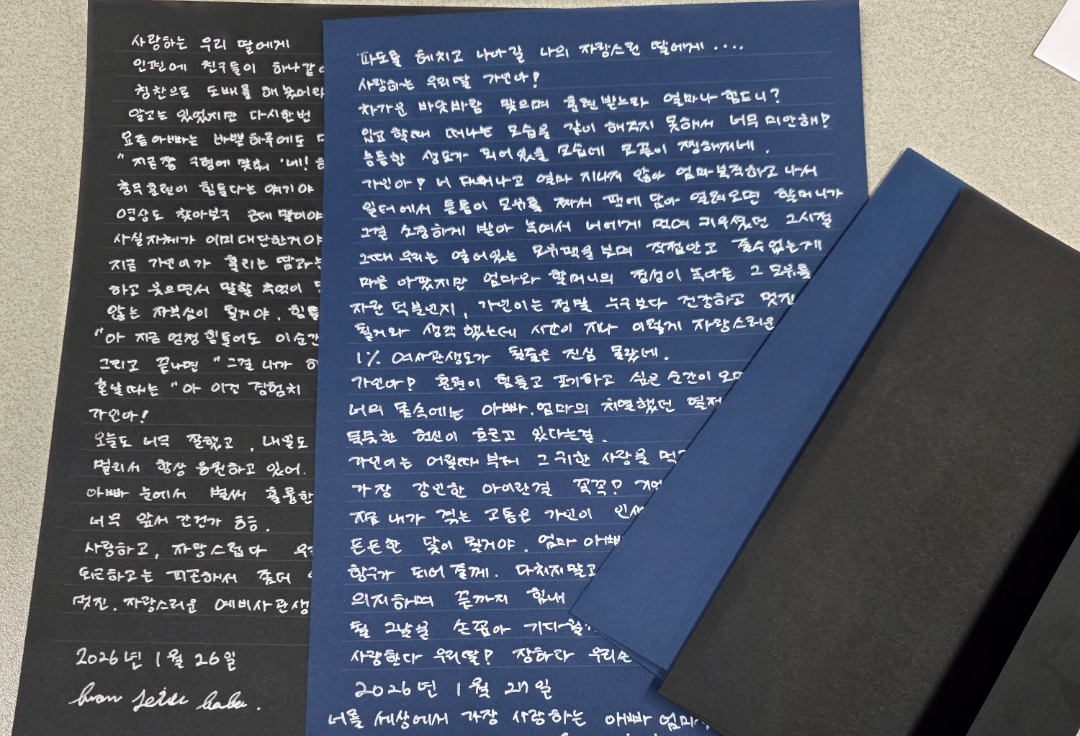 사랑하는 우리 딸에게
인편에 친구들이 하나같이
칭찬으로 도배를 해 놨어라
알고는 있었지만 다시한번
요즘 아빠는 바쁠 하루에도
"지금쯤 구령에 맞춰 '네!
훈련이 힘들다는 얘기야
영상도 찾아보구 근데 말이야
사실자체가 이미 대단한거야
지금 가인이가 흘리는 땀과
하고 웃으면서 말할 추억이
않는 자부심이 될거야. 힘들
"아 지금 엄청 힘들어도 이순간
그리고 끝나면 "그걸 내가
혼날때는 "아 이건 경험치
가인아!
오늘도 너무 잘했고, 내일도
멀리서 항상 응원하고 있어.
아빠 눈에서 벌써 훌륭한
너무 앞서 간건가 ㅎㅎ.
사랑하고, 자랑스럽다
퇴근하고는 피곤해서 좀더
멋진. 자랑스러운 예비사관생
2026년 1월 26일
파도를 헤치고 나아갈 나의 자랑스런 딸에게 ....
사랑하는 우리딸 가인아!
차가운 바닷바람 맞으며 훈련받느라 얼마나 힘드니?
입교할때 떠나는 모습을 같이 해주지 못해서 너무 미안해!
늠름한 생도가 되어있을 모습에 코끝이 찡해지네.
가인아! 너 태어나고 얼마 지나지 않아 엄마복직하고 나서
일터에서 틈틈이 모유를 짜서 팩에 담아 얼려오면 할머니가
그걸 소중하게 받아 녹여서 너에게 먹여 키우셨던 그시절
그때 우리는 얼어있는 모유팩을 보며 직접안고 줄수없는게
마음 아팠지만 엄마와 할머니의 정성이 녹아든 그 모유를
자란 덕분인지, 가인이는 정말 누구보다 건강하고 멋진
될거라 생각 했는데 시간이 지나 이렇게 자랑스러운
1% 여사관생도가 될줄은 진심 몰랐네.
가인아! 훈련이 힘들고 포기하고 싶은 순간이 오면
너의 몸속에는 아빠.엄마의 치열했던 열정
뜨뜻한 헌신이 흐르고 있다는걸.
가인이는 어릴때 부터 그 귀한 사랑을 먹고
가장 강인한 아이란걸 꼭꼭!
지금 내가 겪는 고통은 가인이 인생
든든한 닻이 될거야. 엄마 아빠
항구가 되어줄께. 다치지말고
의지하며 끝까지 힘내
될 그날을 손꼽아 기다릴께
사랑한다 우리딸! 장하다 우리
2026년 1월 27일
너를 세상에서 가장 사랑하는 아빠 엄마